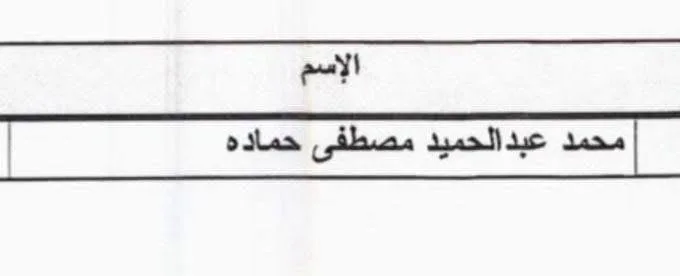 الإسم
محمد عبدالحميد مصطفى حماده